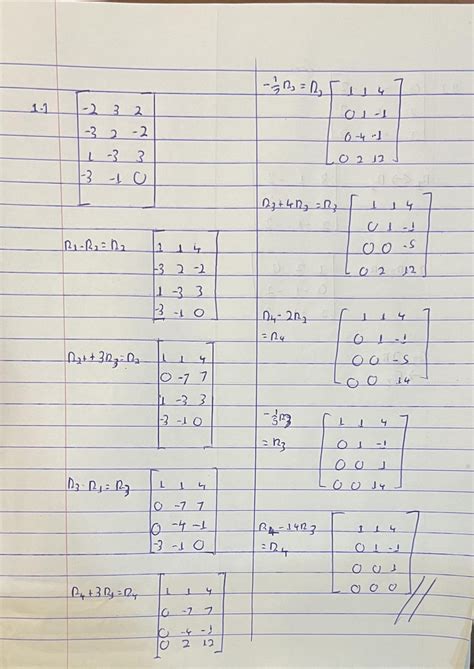 1.1
-2 3 2
-3 2 -2
1 -3 3
-3 -1 0
R1-R2=R2
1 1 4
-3 2 -2
1 -3 3
-3 -1 0
R2++3R3=R2
1 1 4
0 -7 7
1 -3 3
-3 -1 0
R3-R1=R3
1 1 4
0 -7 7
0 -4 -1
-3 -1 0
R4+3R1=R4
1 1 4
0 -7 7
0 -4 -1
0 2 12
1 1 4
0 1 -1
0 -4 -1
0 2 12
R3+4R2=R3
1 1 4
0 1 -1
0 0 -5
0 2 12
R4-2R2
=R4
1 1 4
0 1 -1
0 0 -5
0 0 14
-1/5R3
=R3
1 1 4
0 1 -1
0 0 1
0 0 14
R4-14R3
=R4
1 1 4
0 1 -1
0 0 1
0 0 0